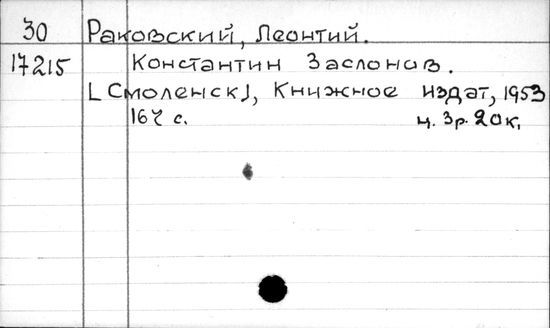 30 Раковский, Леонтий.
17215 Константин Заслонов.
[Смоленск], Книжное издат, 1953
164 с. ц. 3р. 20к.